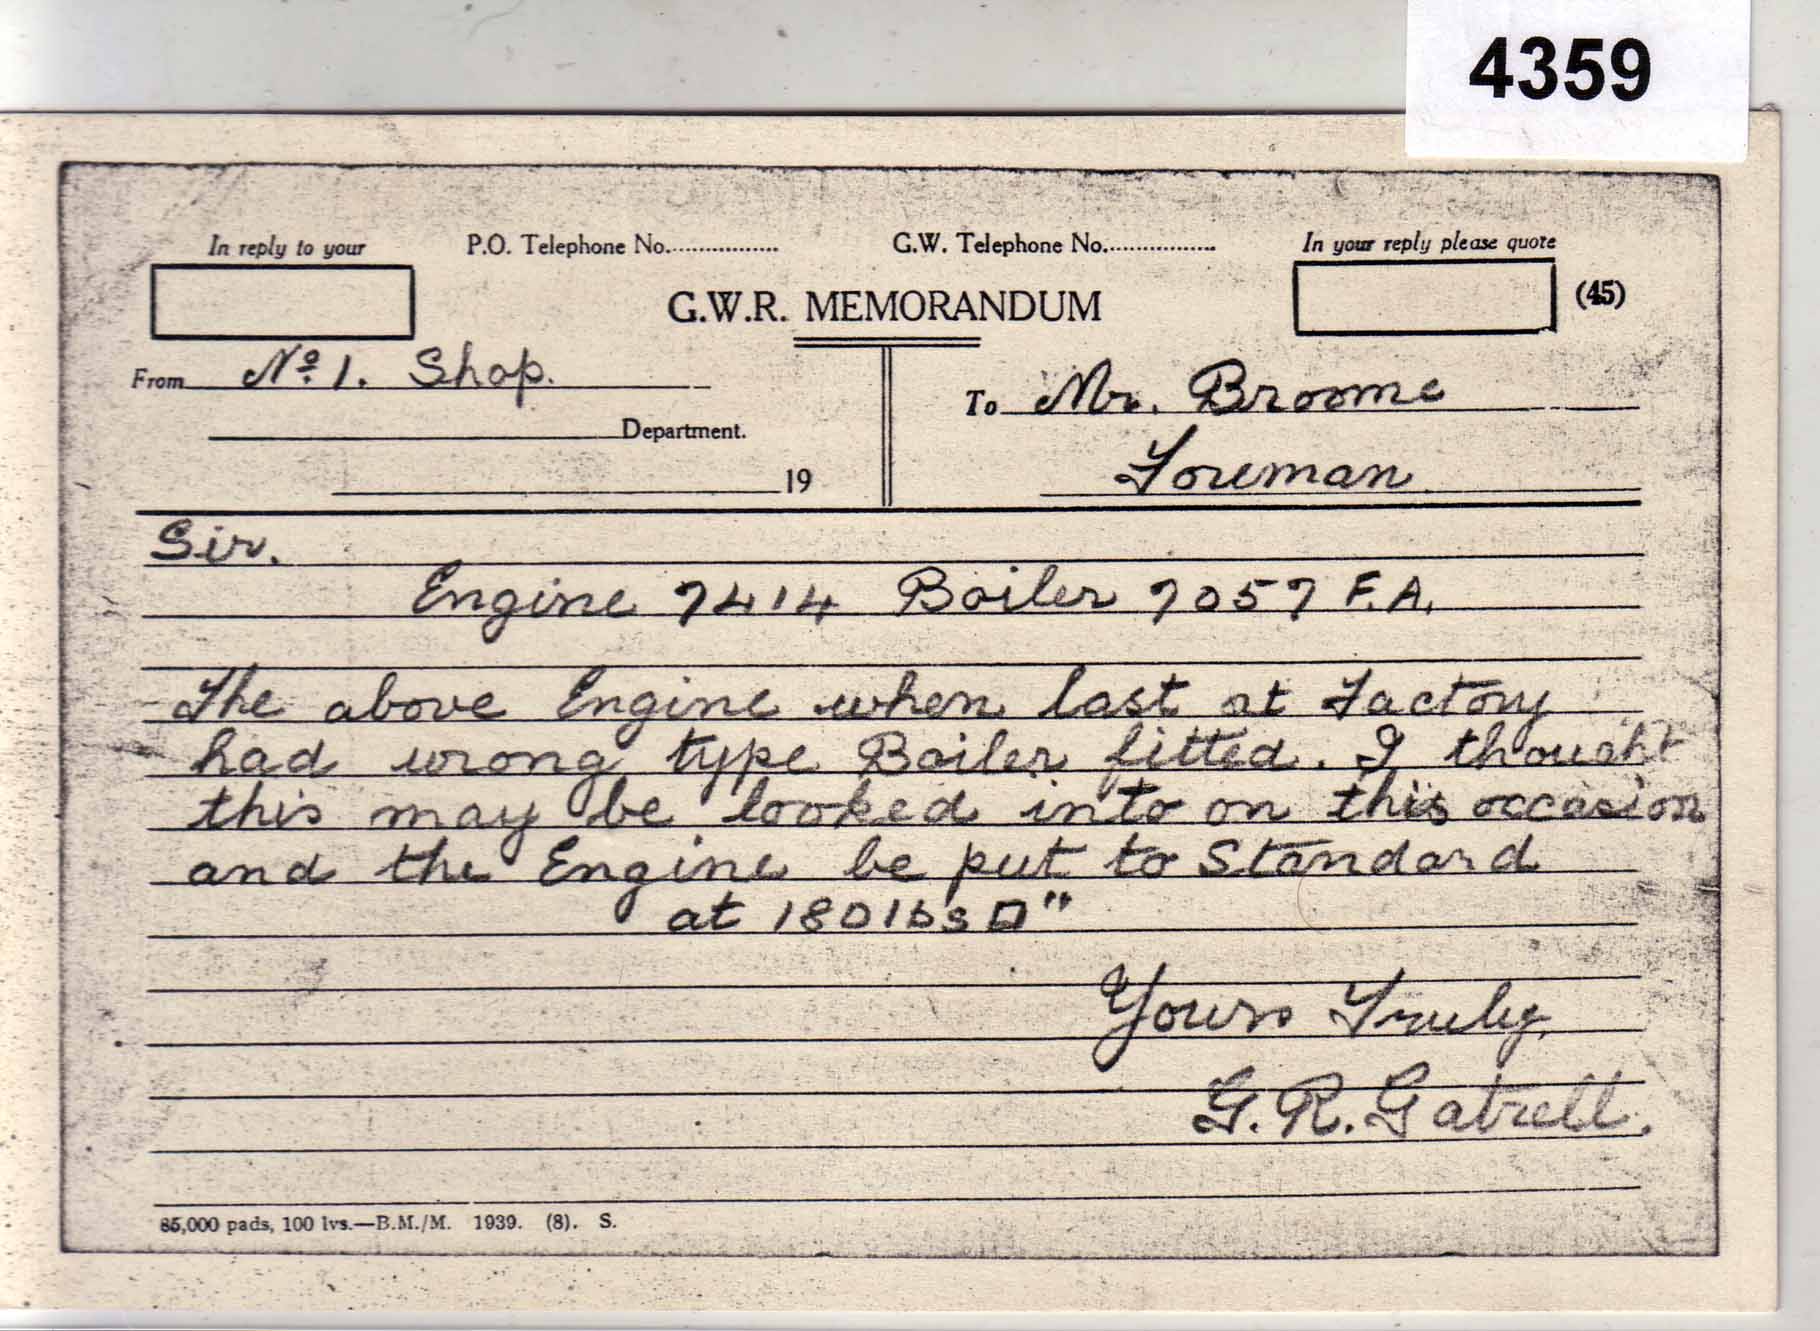 4359
In reply to your P.O. Telephone No................. G.W. Telephone No................. In your reply please quote
G.W.R. MEMORANDUM (45)
From No. 1. Shop.
To Mr. Broome
Department.
Foreman
19
Sir.
Engine 7414 Boiler 7057 F.A.
The above Engine when last at Factory
had wrong type Boiler fitted. I thought
this may be looked into on this occasion
and the Engine be put to Standard
at 180 lbs □"
Yours Truly,
G. R. Gatrell.
85,000 pads, 100 lvs.—B.M./M. 1939. (8). S.